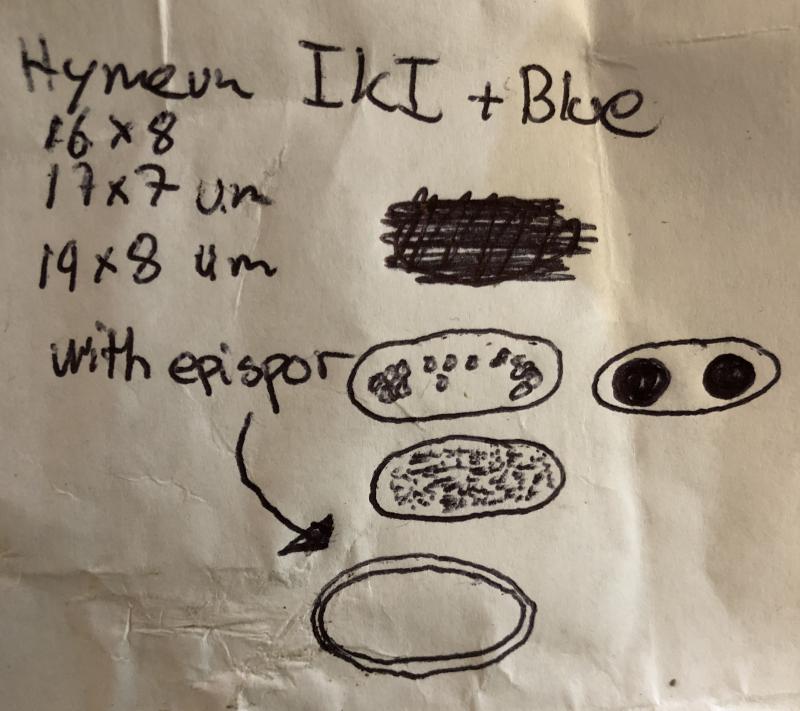 Hymeum IKI + Blue
16 x 8
17 x 7 um
19 x 8 um
with epispor